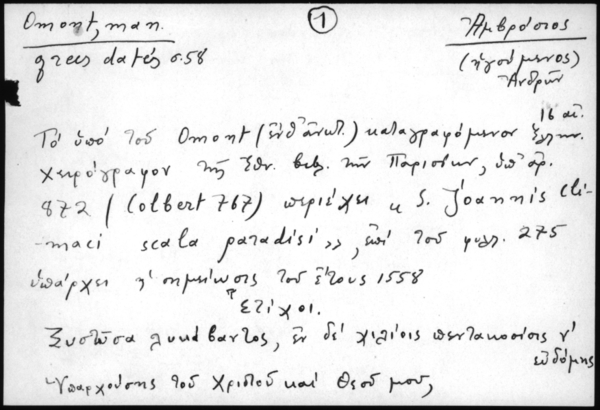 Omont, man.
grecs datés σ. 58
1
Ἀμβρόσιος
(ἡγούμενος)
Ἀνδρῶν
16 αἰ.
Τό ὑπό τοῦ Omont (ἐνθ' ἀνωτ.) καταγραφόμενον ἑλλην.
χειρόγραφον τῆς Ἐθν. βιβλ. τῶν Παρισίων, ὑπ' ἀρ.
872 (Colbert 767) περιέχει « S. Joannis Cli-
-maci scala paradisi», ἐπί τοῦ φυλλ. 275
ὑπάρχει ἡ σημείωσις τοῦ ἔτους 1558
Στίχοι.
λυκάβαντος, ἐν δέ χιλίοις πεντακοσίοις ν'
ἑβδόμης
Ὑπαρχούσης τοῦ Χριστοῦ καί Θεοῦ μου,